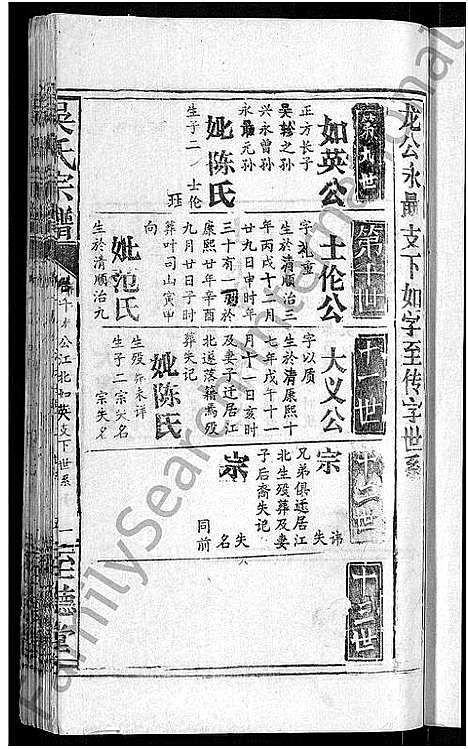 龙公永最支下如字至传字世系
第九世
如英公
正方长子
吴轸之孙
兴永曾孙
永最元孙
妣陈氏
生子二 士伦
珏
第十世
士伦公
字礼重
生於清顺治三
年丙戌十月
廿九日申时年
三十有二殁於
康熙廿年辛酉
九月廿日子时
葬叶司山寅甲
向
妣范氏
生於清顺治九
十一世
大义公
字以质
生於清康熙十
七年戊午十一
月十一日亥时
及妻子迁居江
北遂落籍焉殁
葬失记
妣陈氏
生殁葬未详
生子二 宗失名
宗失名
十二世
宗
失讳
兄弟俱迁居江
北生殁葬及妻
子后裔失记
宗
失名
同前
十三世
吴氏宗谱
公江北如英支下世系
至德堂
FamilySearch International